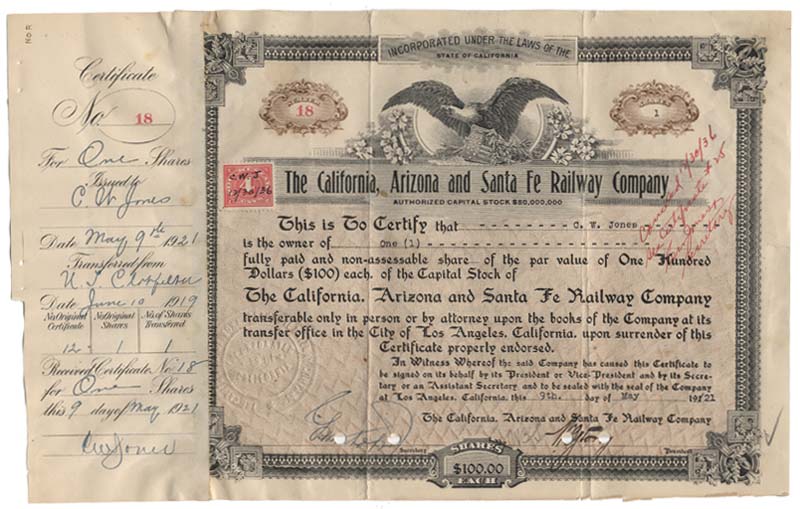 No R
Certificate
No 18
For One Shares
Issued to
C. W. Jones
Date May 9th 1921
Transferred from
Date June 10 1919
No Original Certificate No Original Shares No. of Shares Transferred
12 - 1 1
Received Certificate No. 18
for One Shares
this 9 day of May 1921
CW Jones
INCORPORATED UNDER THE LAWS OF THE
STATE OF CALIFORNIA
NUMBER
18
SHARES
1
C.W.J
The California, Arizona and Santa Fe Railway Company
AUTHORIZED CAPITAL STOCK $50,000,000
This is To Certify that C. W. Jones
is the owner of One (1)
fully paid and non-assessable share of the par value of One Hundred
Dollars ($100) each, of the Capital Stock of
The California, Arizona and Santa Fe Railway Company
transferable only in person or by attorney upon the books of the Company at its
transfer office in the City of Los Angeles, California, upon surrender of this
Certificate properly endorsed.
In Witness Whereof the said Company has caused this Certificate to
be signed on its behalf by its President or Vice-President and by its Secre-
tary or an Assistant Secretary and to be sealed with the seal of the Company
at Los Angeles, California, this 9th. day of May 1921
The California, Arizona and Santa Fe Railway Company
Secretary
President
SHARES
$100.00
EACH
Canceled
Secretary